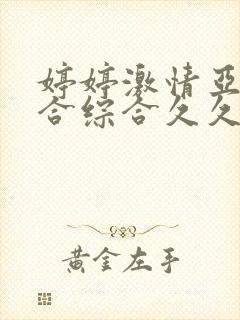 婷婷激情亚
合综合久久
黄金左手